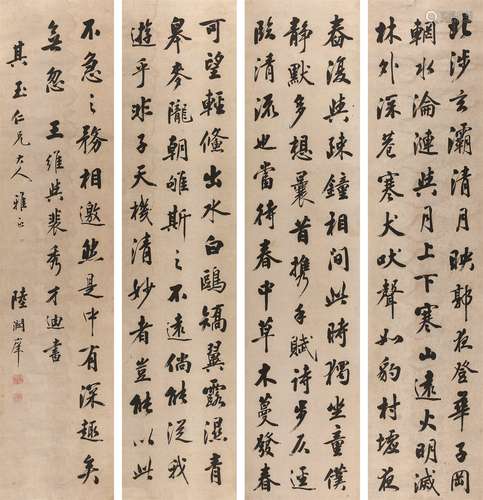 北涉玄灞清月映郭夜登華子岡
輞水淪漣與月上下寒山遠火明滅
林外深巷寒犬吠聲如豹村墟夜
舂復與疎鐘相間此時獨坐童僕
靜默多想曩昔携手賦詩步仄逕
臨清流也當待春中草木蔓發春
可望輕鯈出水白鷗矯翼露濕青
皋麥隴朝雊斯之不遠倘能從我
遊乎非子天機清妙者豈能以此
不急之務相邀然是中有深趣矣
無忽 王維與裴秀才迪書
其玉仁兄大人雅正
陸潤庠